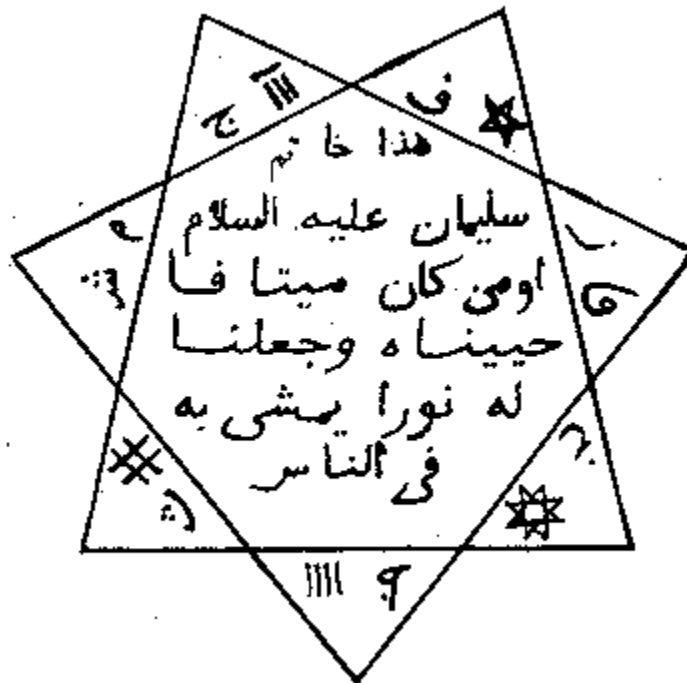 هذا خا تم
سليمان عليه السلام
اومن كان ميتا فا
حييناه وجعلنا
له نورا يمشي به
في الناس
ف
ج
ز
ش
ث